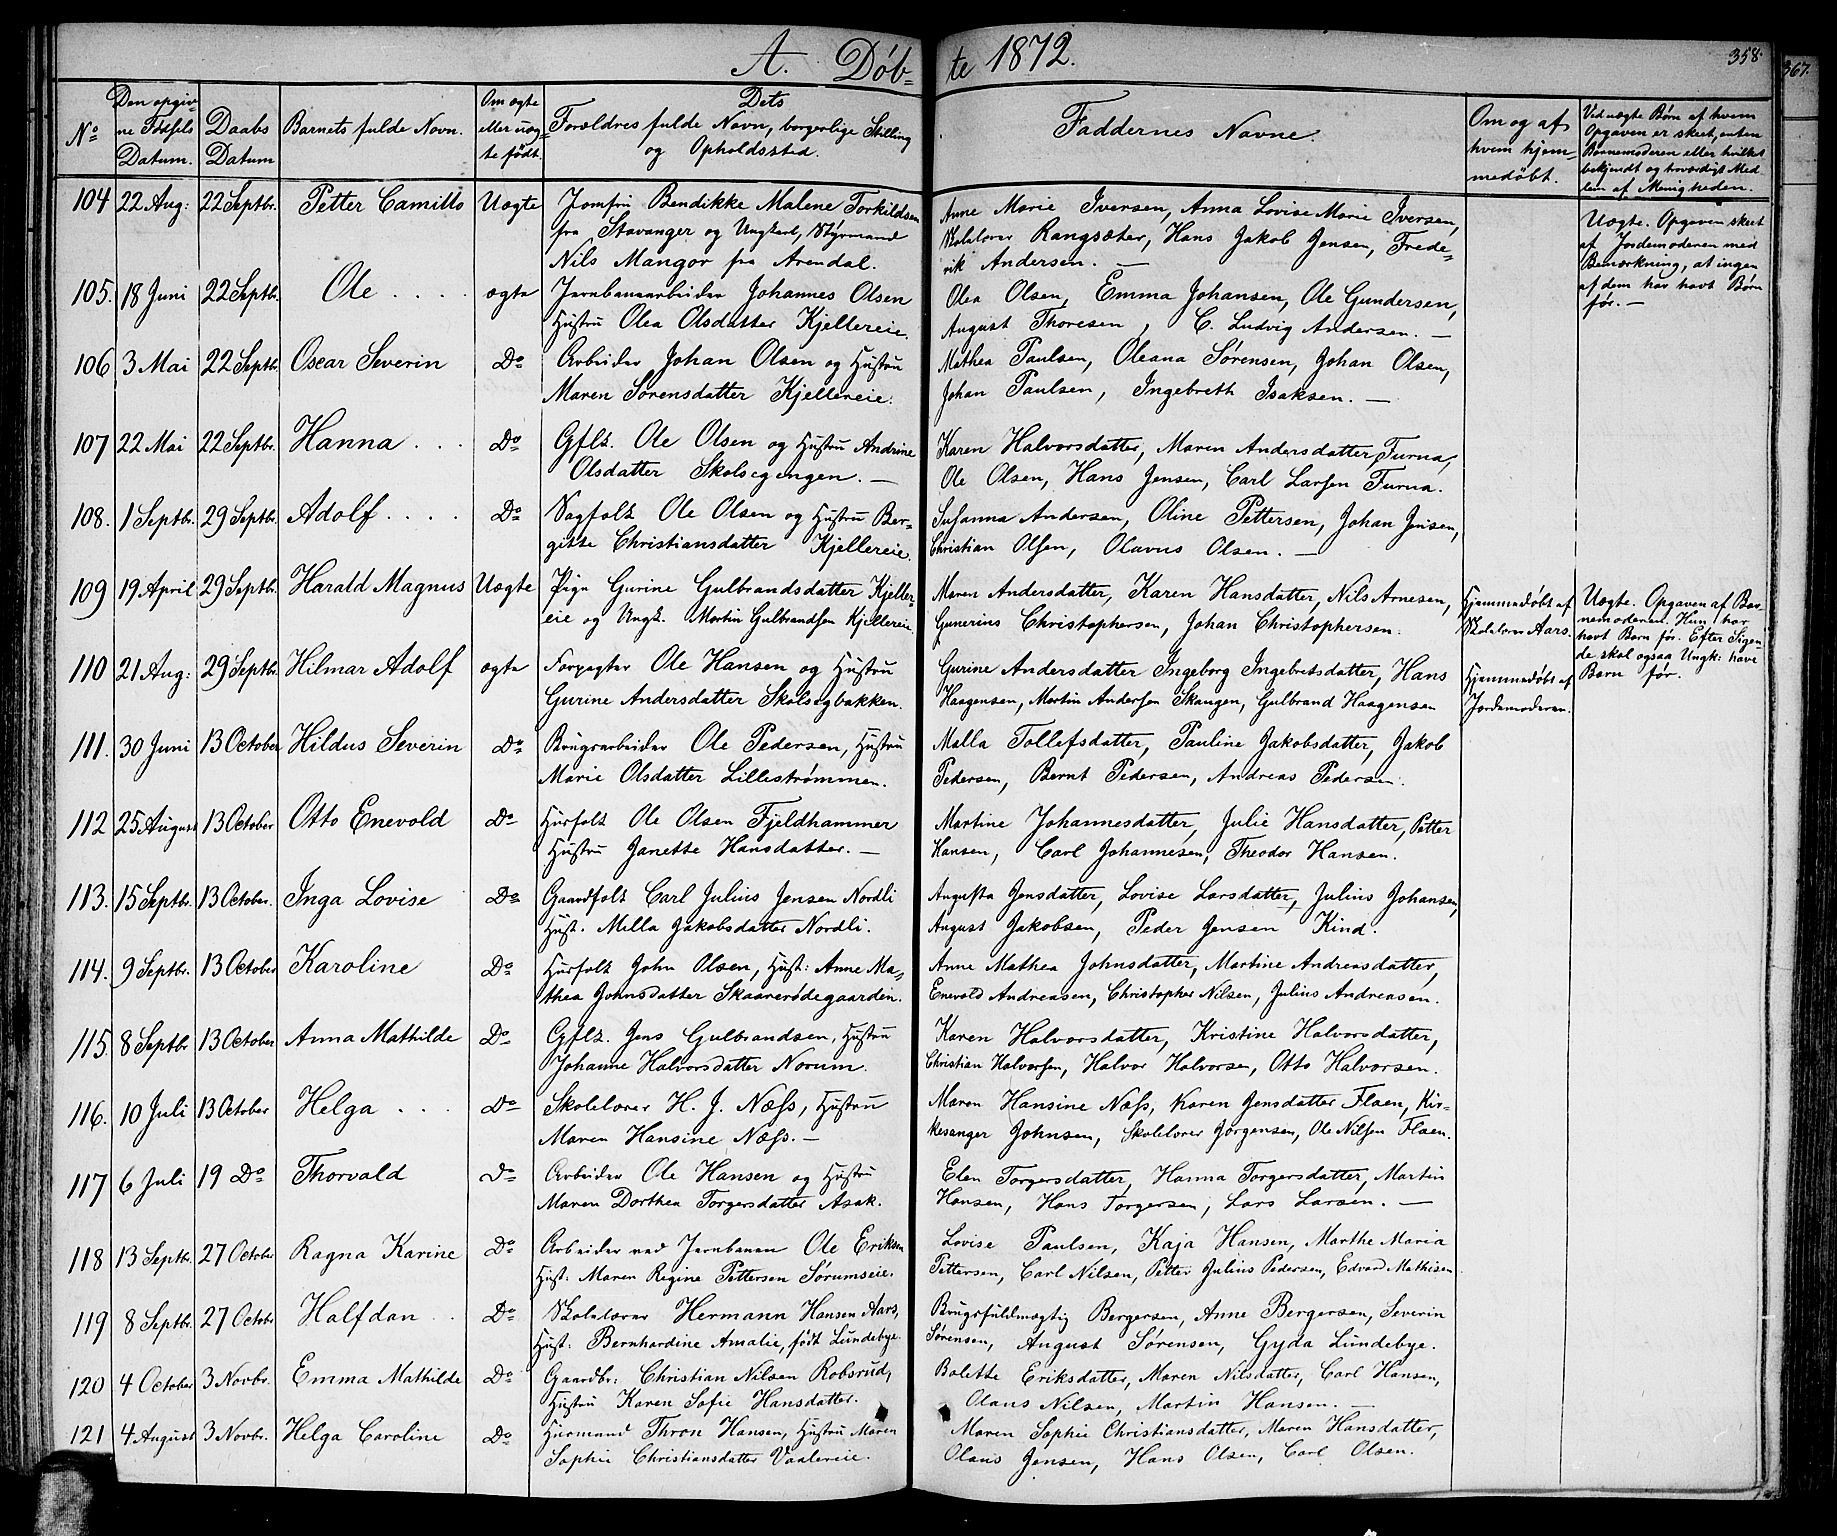 A. Døb= te 1872.
358.
367.
No
Den opgiv=
ne Fødsels
Datum.
Daabs
Datum
Barnets fulde Navn.
Om ægte
eller uæg=
te født.
Dets
Forældres fulde Navn, borgerlige Stilling
og Opholdssted.
Faddernes Navne.
Om og af
hvem hjem=
medøbt.
Ved uægte Børn af hvem
Opgaven er skeet, enten
Barnemoderen eller hvilket
bekjendt og troværdigt Med=
lem af Menigheden.
104 22 Aug: 22 Septbr. Petter Camillo Uægte Jomfru Bendikke Malene Torkildsen
fra Stavanger og Ungkarl, Styrmand
Nils Mangor fra Arendal.
Anne Marie Iversen, Anna Lovise Marie Iversen,
Skolelærer Rangsæter, Hans Jakob Jensen, Frede=
rik Andersen. —
Uægte. Opgaven skeet
af Jordemoderen med
Bemærkning, at ingen
af dem har havt Børn
før. —
105. 18 Juni 22 Septbr. Ole . . . . ægte Jernbanearbeider Johannes Olsen
Hustru Olea Olsdatter Kjellereie.
Olea Olsen, Emma Johansen, Ole Gundersen,
August Thoresen, C. Ludvig Andersen. —
106 3 Mai 22 Septbr. Oscar Severin Do Arbeider Johan Olsen og Hustru
Maren Sørensdatter Kjellereie.
Mathea Paulsen, Oleana Sørensen, Johan Olsen,
Johan Paulsen, Ingebreth Isaksen. —
107 22 Mai 22 Septbr. Hanna . . . Do Gflk. Ole Olsen og Hustru Andrine
Olsdatter Skolsegengen. —
Karen Halvorsdatter, Maren Andersdatter Furna,
Ole Olsen, Hans Jensen, Carl Larsen Furna.
108. 1 Septbr. 29 Septbr. Adolf . . . . Do Sagfolk Ole Olsen og Hustru Ber=
gitte Christiansdatter Kjellereie.
Susanna Andersen, Oline Pettersen, Johan Jensen,
Christian Olsen, Olavus Olsen. —
109 19 April 29 Septbr. Harald Magnus Uægte Pige Gurine Gulbrandsdatter Kjeller=
eie og Ungk. Martin Gulbrandsen Kjellereie.
Maren Andersdatter, Karen Hansdatter, Nils Arnesen,
Gunerius Christophersen, Johan Christophersen.
Hjemmedøbt af
Skolelærer Aars.
Uægte. Opgaven af Bar=
nemoderen. Hun har
havt Barn før. Efter Sigen=
de skal ogsaa Ungk: have
Barn før.
110 21 Aug: 29 Septbr. Hilmar Adolf ægte Forpagter Ole Hansen og Hustru
Gurine Andersdatter Skolsegbakken.
Gurine Andersdatter Ingeborg Ingebretsdatter, Hans
Haagensen, Martin Andersen Skaugen, Gulbrand Haagensen
Hjemmedøbt af
Jordemoderen.
111. 30 Juni 13 October Hildus Severin Do Brugsarbeider Ole Pedersen, Hustru
Marie Olsdatter Lillestrømmen.
Malla Tollefsdatter, Pauline Jakobsdatter, Jakob
Pedersen, Bernt Pedersen, Andreas Pedersen.
112 25 August 13 October Otto Enevold Do Husfolk Ole Olsen Fjeldhammer
Hustru Janette Hansdatter. —
Martine Johannesdatter, Julie Hansdatter, Petter
Hansen, Carl Johannesen, Theodor Hansen.
113. 15 Septbr. 13 October. Inga Lovise Do Gaardfolk Carl Julius Jensen Nordli
Hust. Milla Jakobsdatter Nordli.
Augusta Jensdatter, Lovise Larsdatter, Julius Johansen,
August Jakobsen, Peder Jensen Kind.
114. 9 Septbr. 13 October Karoline Do Husfolk John Olsen, Hust: Anne Ma=
thea Johnsdatter Skaarerødegaarden.
Anne Mathea Johnsdatter, Martine Andreasdatter,
Enevold Andreasen, Christopher Nilsen, Julius Andreasen.
115. 8 Septbr 13 October Anna Mathilde Do Gflk. Jens Gulbrandsen, Hustru
Johanne Halvorsdatter Norum.
Karen Halvorsdatter, Kristine Halvorsdatter,
Christian Halvorsen, Halvor Halvorsen, Otto Halvorsen.
116. 10 Juli 13 October Helga . . . Do Skolelærer H. J. Næss, Hustru
Maren Hansine Næss. —
Maren Hansine Næss, Karen Jensdatter Flaen, Kir=
kesanger Johnsen, Skolelærer Jørgensen, Ole Nilsen Flaen.
117 6 Juli 19 Do Thorvald Do Arbeider Ole Hansen og Hustru
Maren Dorthea Torgersdatter Asak.
Elen Torgersdatter, Hanna Torgersdatter, Martin
Hansen, Hans Torgersen, Lars Larsen. —
118 13 Septbr. 27 October Ragna Karine Do Arbeider ved Jernbanen Ole Eriksen
Hust: Maren Regine Pettersen Sørumseie.
Lovise Paulsen, Kaja Hansen, Marthe Maria
Pettersen, Carl Nilsen, Petter Julius Pedersen, Edvard Mathisen
119 8 Septbr. 27 October Halfdan . . Do Skolelærer Hermann Hansen Aars,
Hust: Bernhardine Amalie, født Lundebye.
Brugsfuldmægtig Bergersen, Anne Bergersen, Severin
Sørensen, August Sørensen, Gyda Lundebye.
120 4 October 3 Novbr. Emma Mathilde Do Gaardbr: Christian Nilsen Robsrud,
Hustru Karen Sofie Hansdatter.
Bolette Eriksdatter, Maren Nilsdatter, Carl Hansen,
Olaus Nilsen, Martin Hansen. —
121 4 August 3 Novbr. Helga Caroline Do Husmand Thron Hansen, Hustru Maren
Sophie Christiansdatter Vaalereie.
Maren Sophie Christiansdatter, Maren Hansdatter,
Olaus Jensen, Hans Olsen, Carl Olsen.